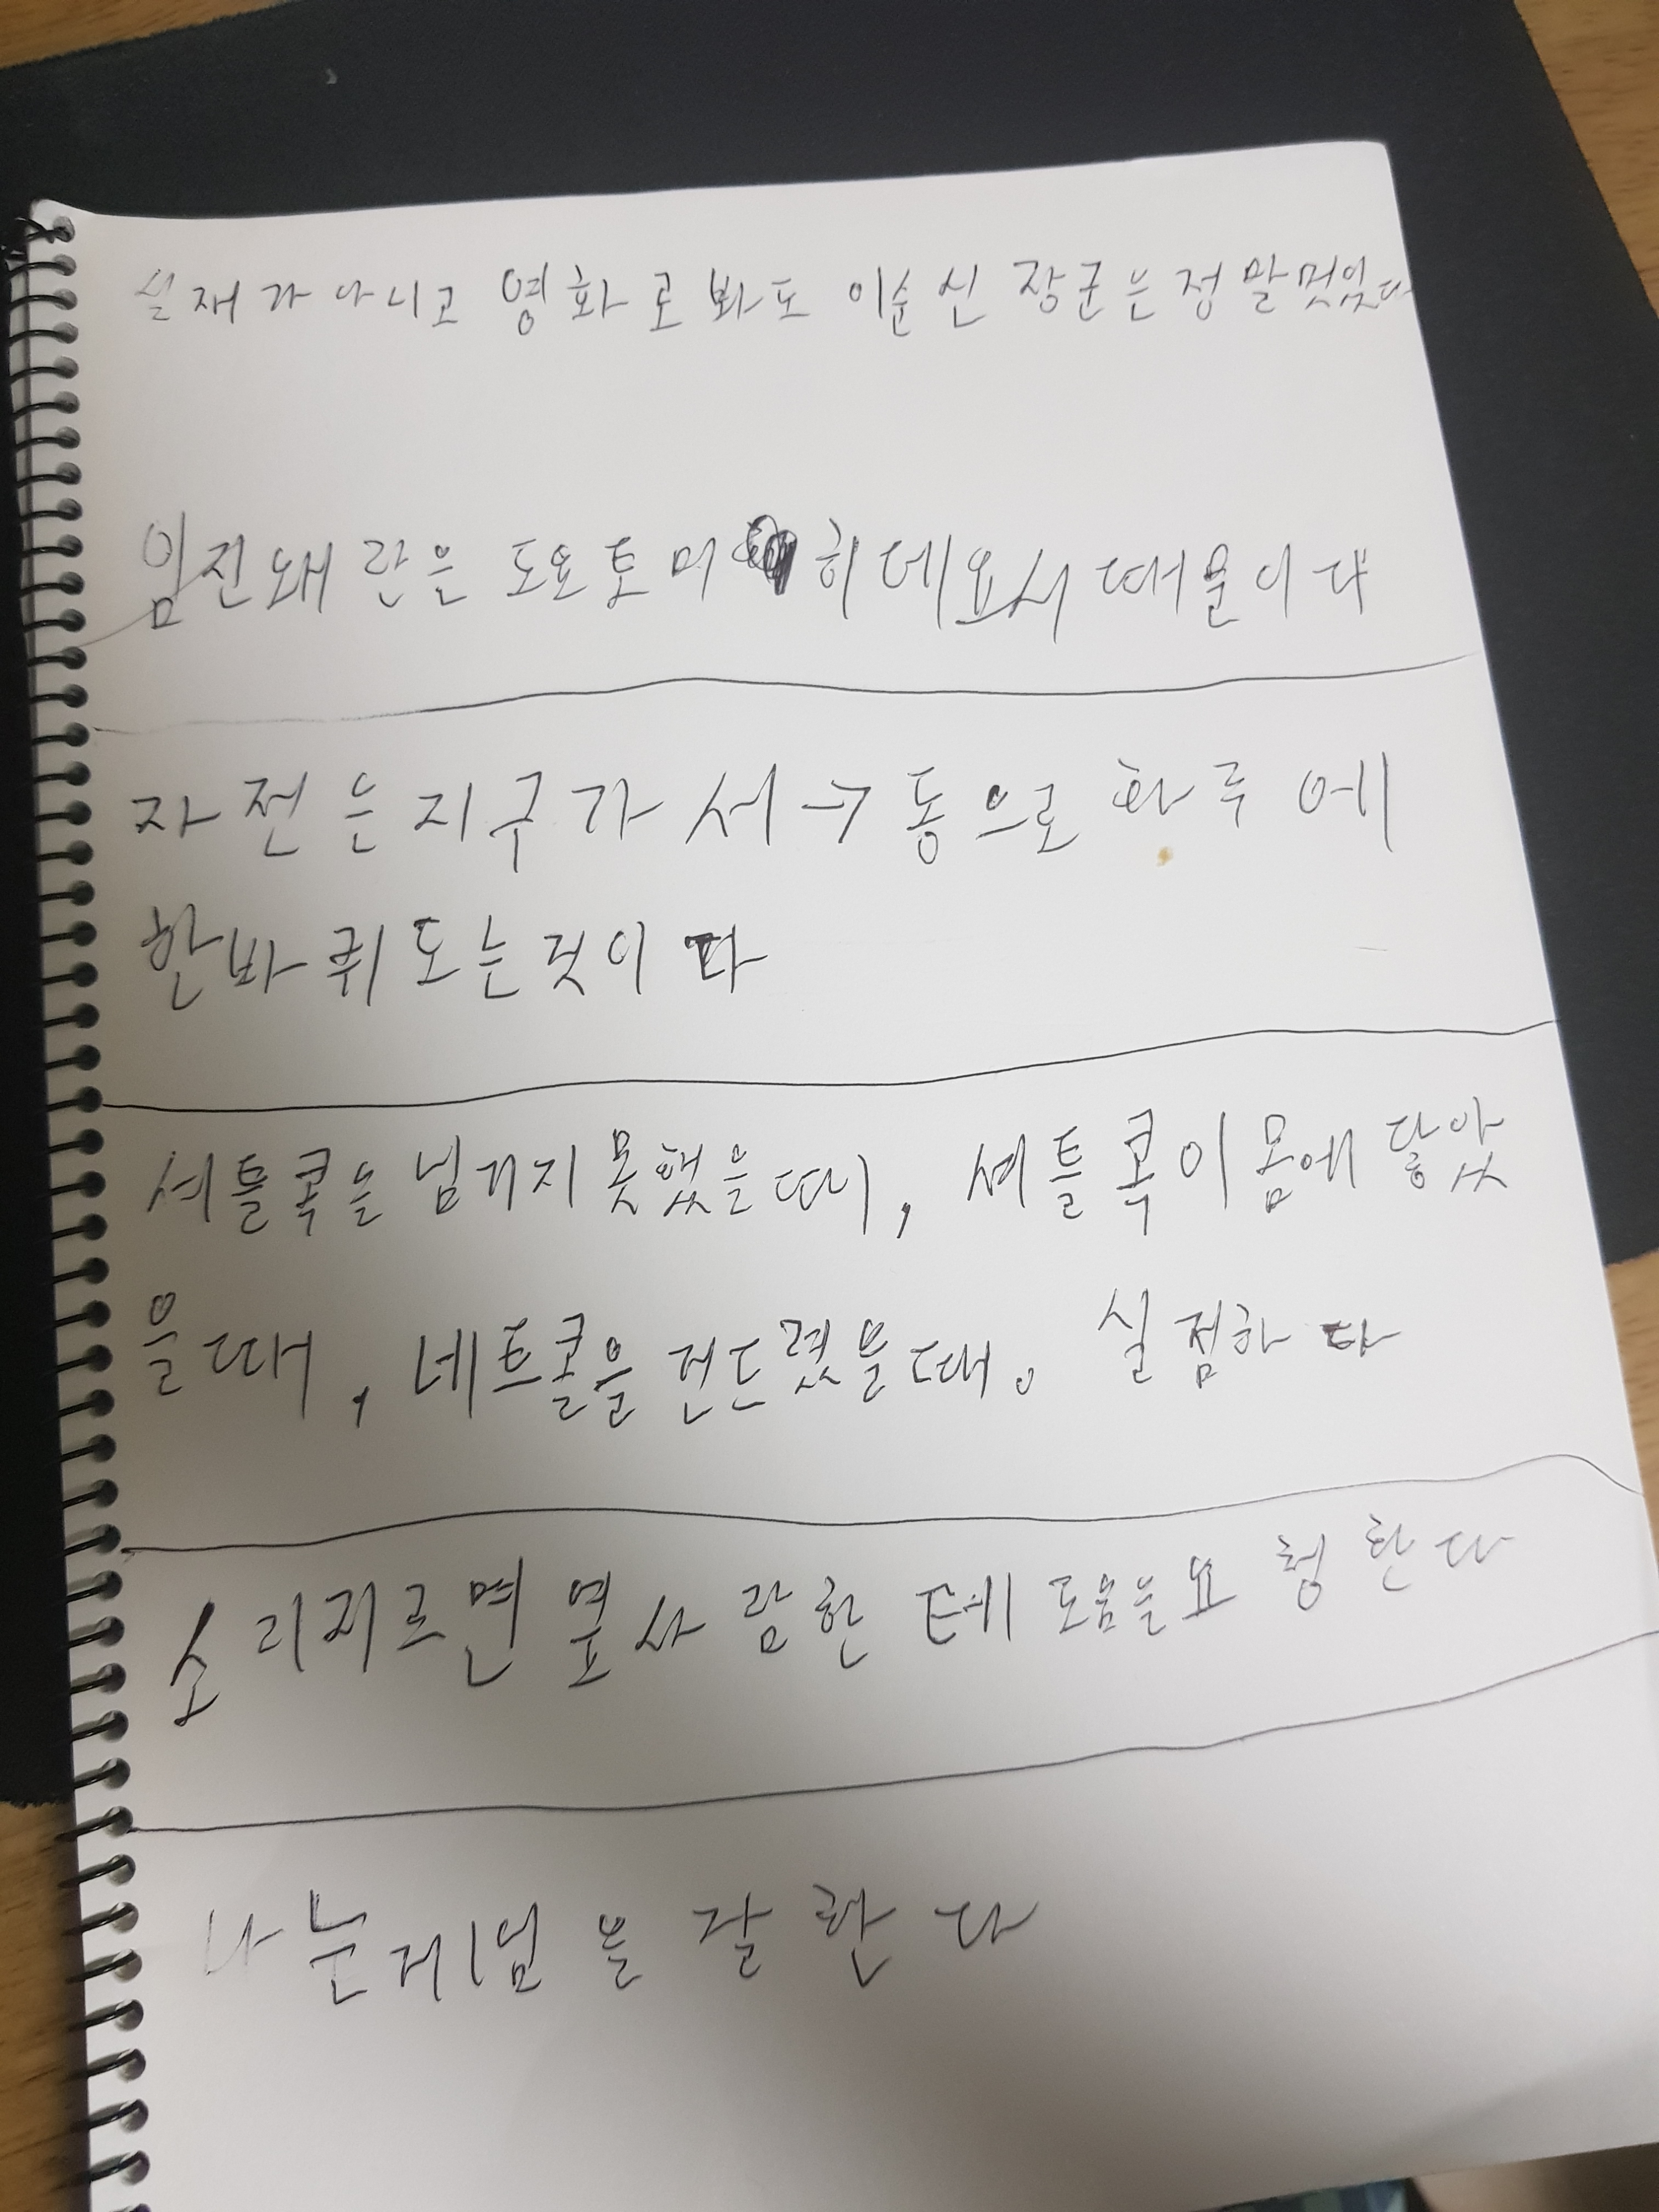 실재가 아니고 영화로 봐도 이순신 장군은 정말멋있다
임진왜란은 도요토미 히데요시 때문이다
자전은 지구가 서→동으로 하루에
한바퀴 도는것이다
셔틀콕을 넘기지 못했을때, 셔틀콕이 몸에 닿았
을때, 네트콜을 건드렸을때. 실점하다
소리지르면 옆사람한테 도움을요청한다
나는게임을 잘한다